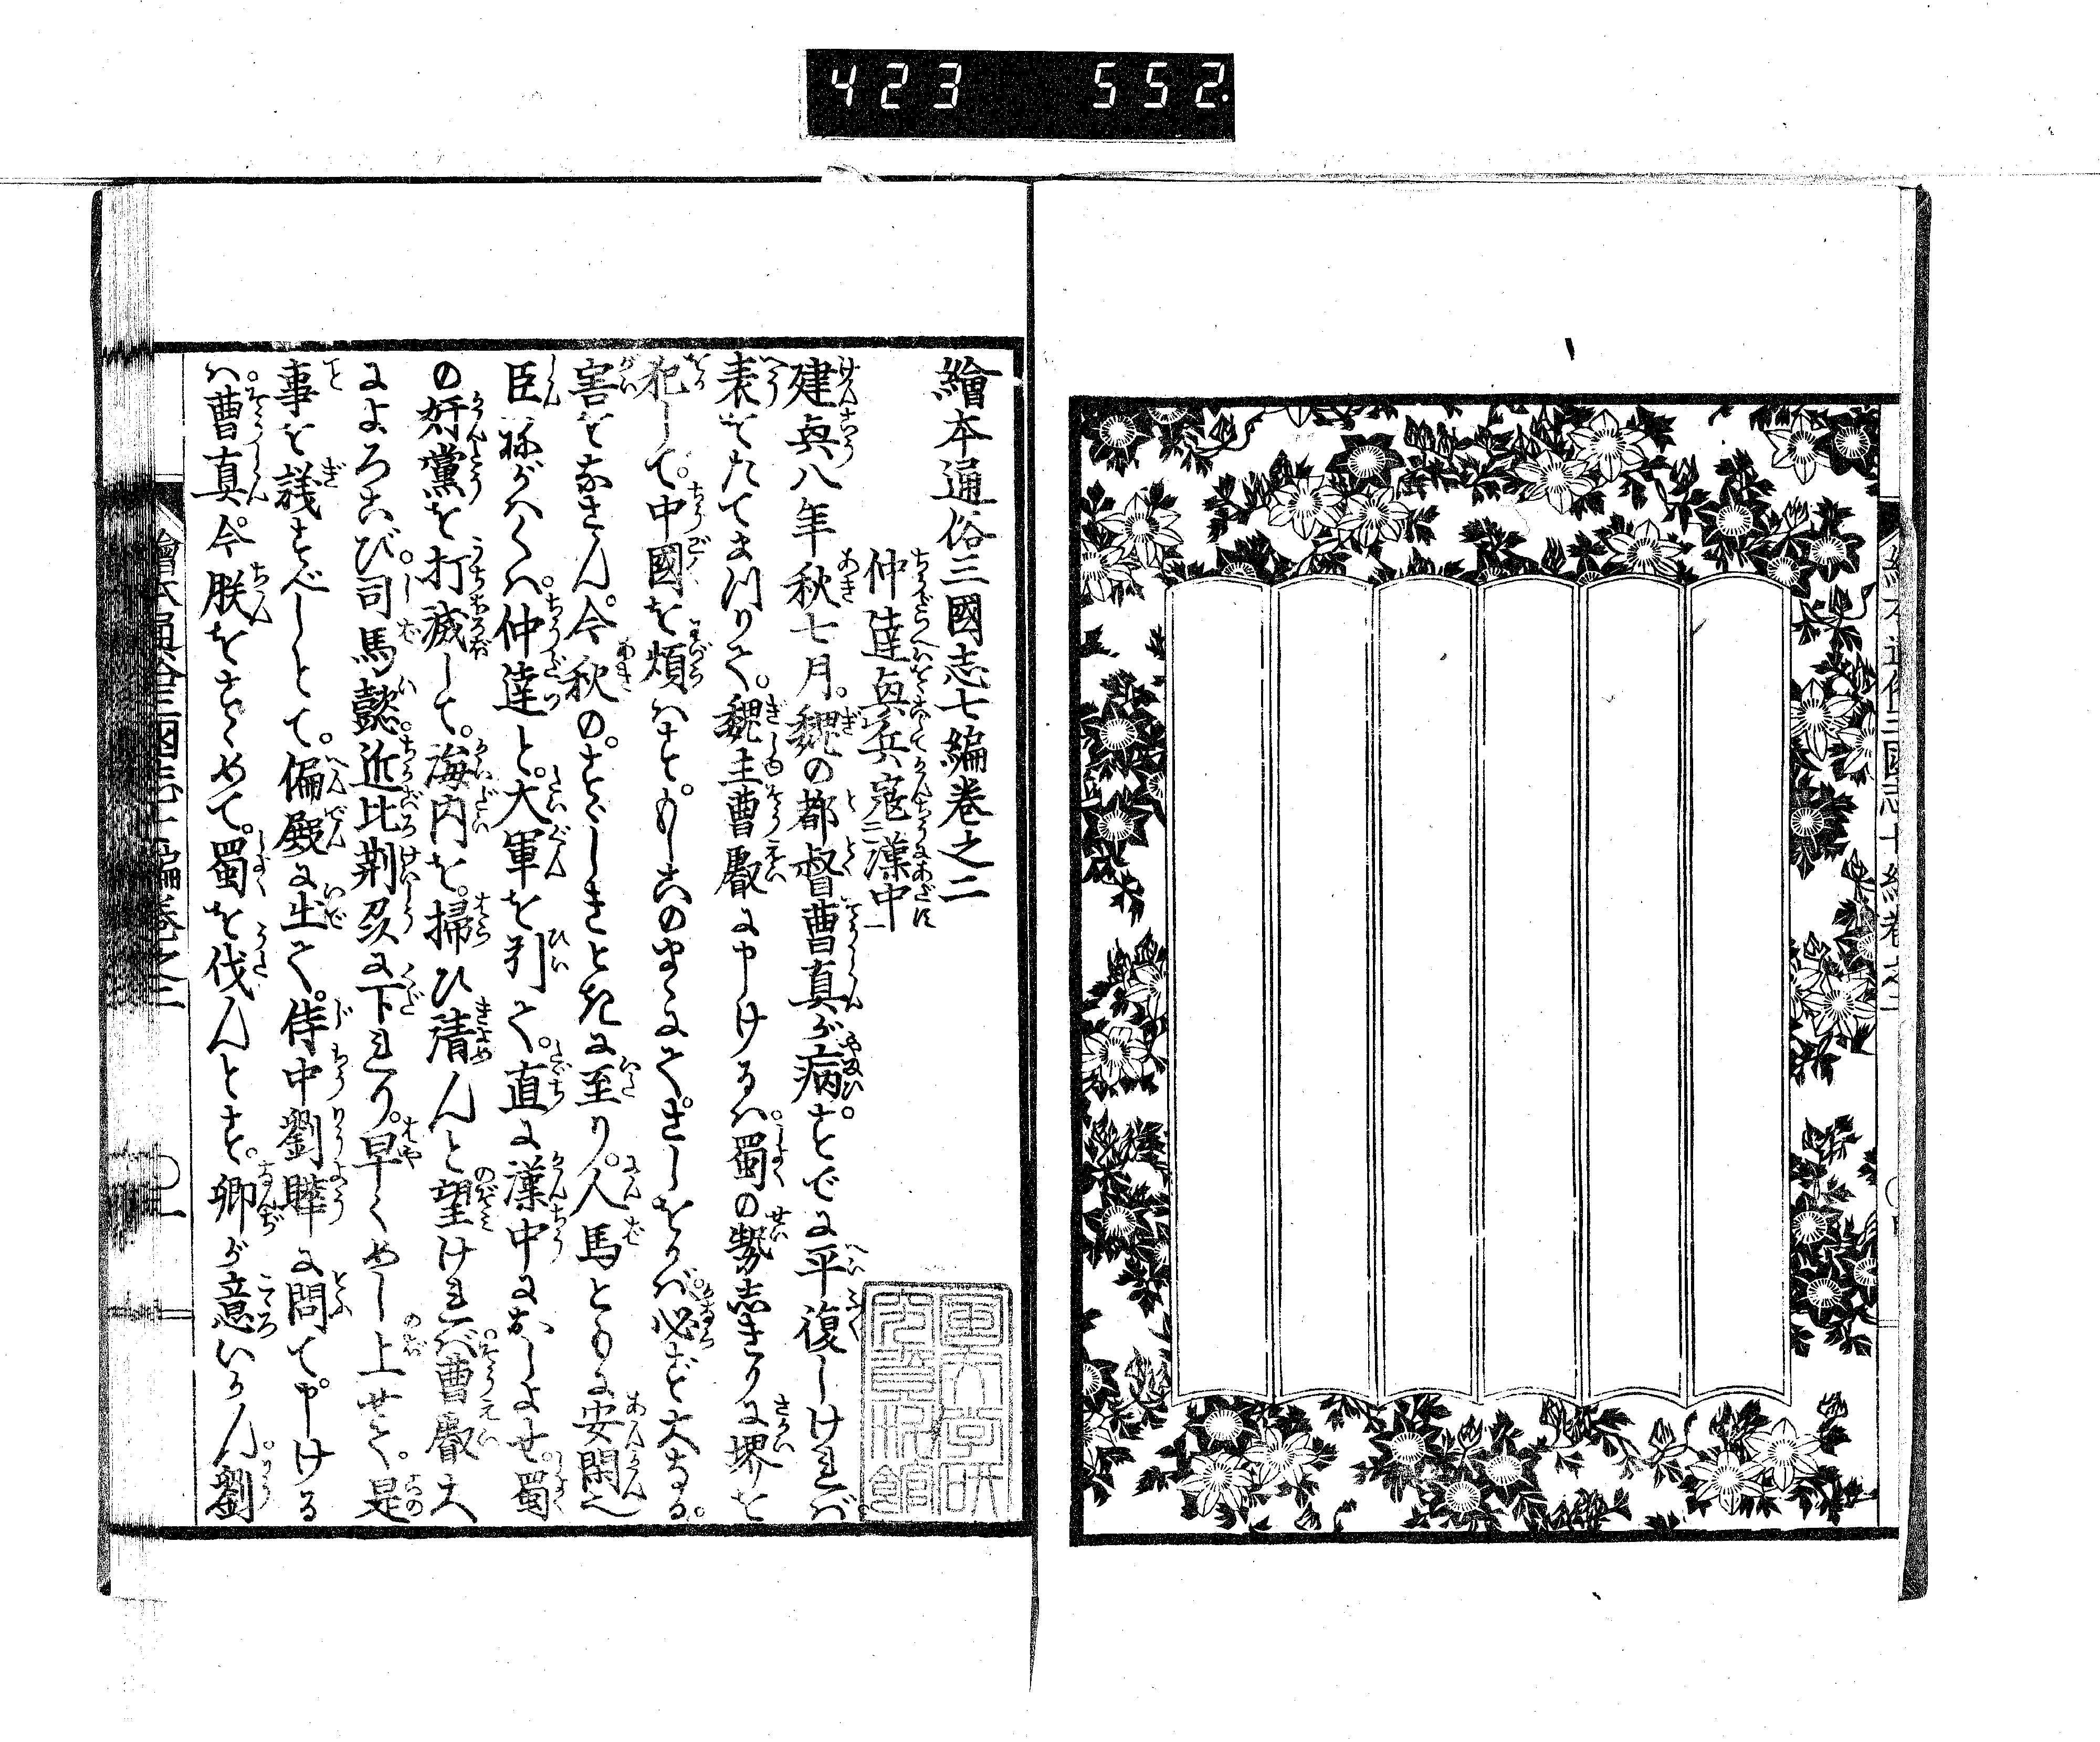 423 552
繪本通俗三國志七編巻之二
仲達興兵寇二漢中一
建興八年秋七月。魏の都督曹真が病。すでに平復しければ。
表をたてまつりて。魏主曹叡に申けるは。蜀の勢志きりに堺を
犯して。中國を煩はす。もしこのまゝにて。さしをかば。必ず大なる。
害をなさん。今秋の。すゞしきときに至り。人馬ともに安閑也
臣ねがはくは。仲達と。大軍を引て。直に漢中におしよせ。蜀
の奸黨を打滅して。海内を。掃ひ清んと望ければ。曹叡大
によろこび。司馬懿。近比荆州に下れり。早くめし上せて。是
事を議すべしとて。偏殿に出て。侍中劉曄に問て。申ける
は。曹真。今朕をすゝめて。蜀を伐んとす。卿が意いかん。劉